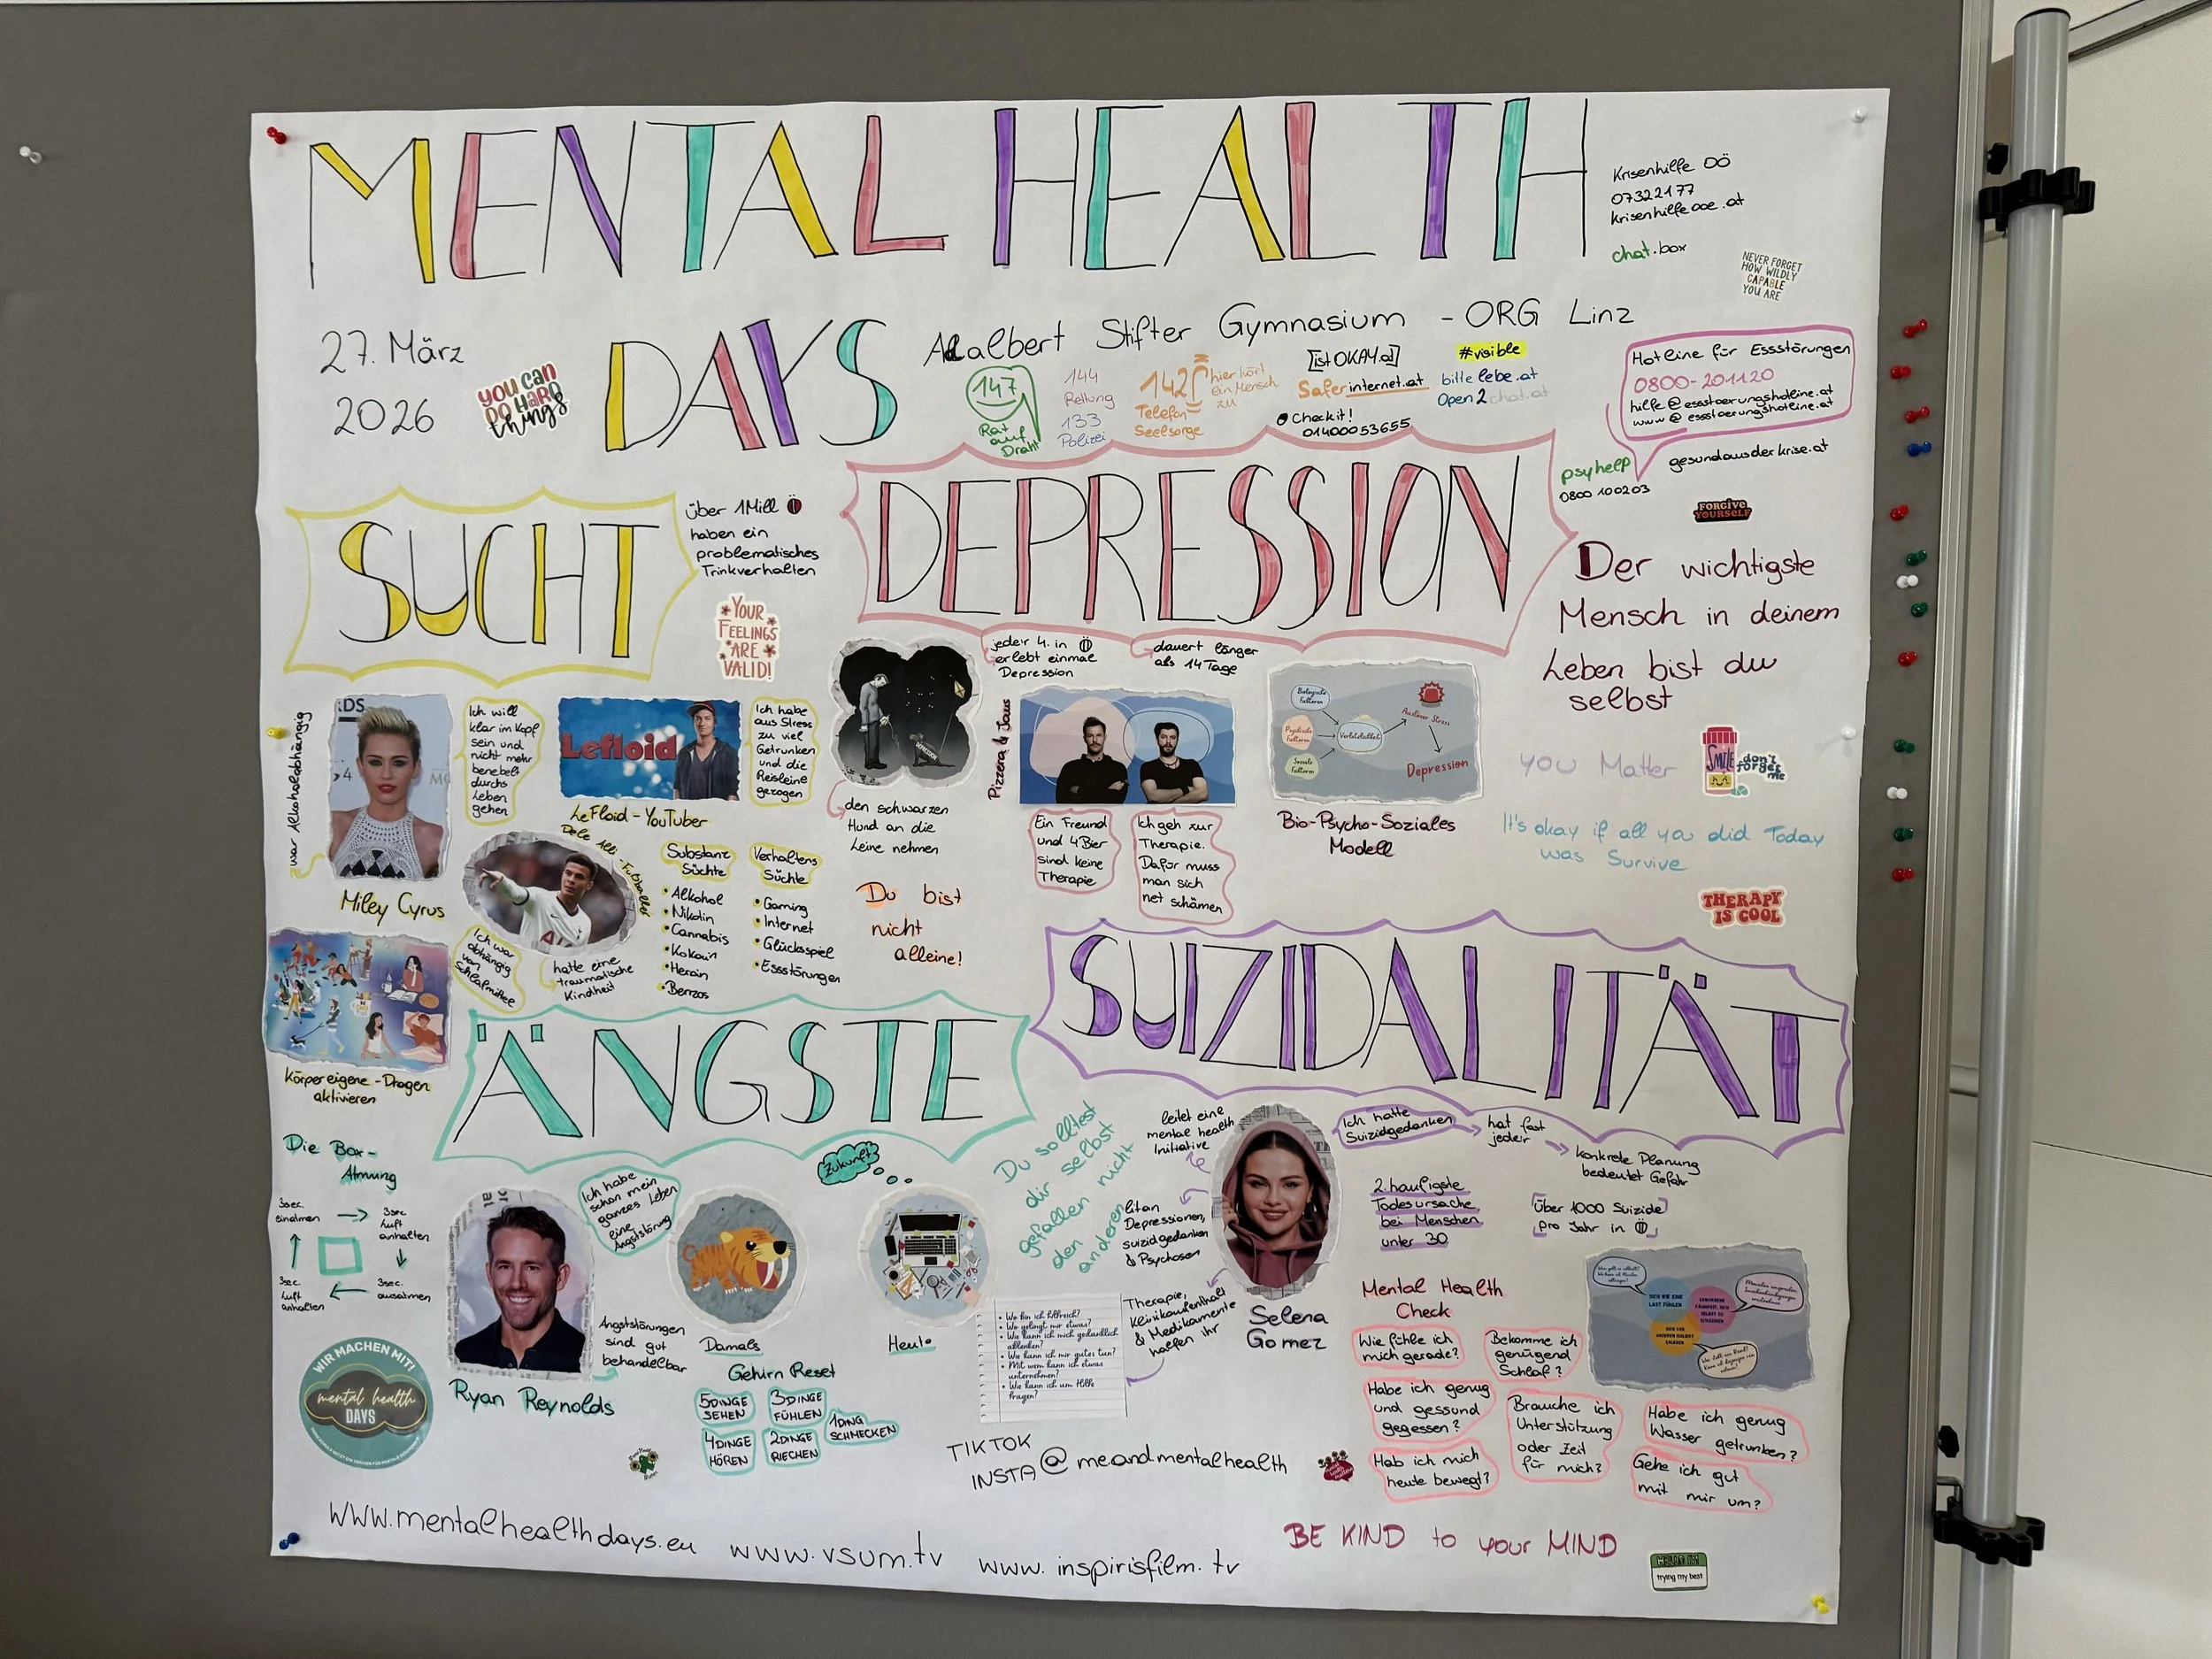 MENTAL HEALTH
DAYS
27. März
2026
YOU CAN
DO HARD
things
Adalbert Stifter Gymnasium - ORG Linz
Krisenhilfe OÖ
07322177
krisenhilfeooe.at
chat.box
NEVER FORGET
HOW WILDLY
CAPABLE
YOU ARE
147
Rat
auf
Draht
144
Rettung
133
Polizei
142
Telefon
Seelsorge
hier hört
ein Mensch
zu
[ist OKAY.at]
Saferinternet.at
Checkit!
01400053655
#visible
bittelebe.at
Open2chat.at
Hotline für Essstörungen
0800-201120
hilfe@essstoerungshotline.at
www@essstoerungshotline.at
psyhelp
0800 100203
gesundausderkrise.at
FORGIVE
YOURSELF
SUCHT
über 1Mill Ö
haben ein
problematisches
Trinkverhalten
YOUR
FEELINGS
ARE
VALID!
war Alkoholabhängig
Miley Cyrus
Ich will
klar im Kopf
sein und
nicht mehr
benebelt
durchs
Leben
gehen
Lefloid
LeFloid - YouTuber
Ich habe
aus Stress
zu viel
Getrunken
und die
Reisleine
gezogen
Dele Alli - Fußballer
Ich war
abhängig
von
Schlafmittel
hatte eine
traumatische
Kindheit
Substanz
Süchte
• Alkohol
• Nikotin
• Cannabis
• Kokain
• Heroin
• Benzos
Verhaltens
Süchte
• Gaming
• Internet
• Glücksspiel
• Essstörungen
Körpereigene-Drogen
aktivieren
DEPRESSION
jede:r 4. in Ö
erlebt einmal
Depression
dauert länger
als 14 Tage
den schwarzen
Hund an die
Leine nehmen
Du bist
nicht
alleine!
Pizzera & Jaus
Ein Freund
und 4 Bier
sind keine
Therapie
Ich geh zur
Therapie.
Dafür muss
man sich
net schämen
Biologische
Faktoren
Psychische
Faktoren
Soziale
Faktoren
Verletzlichkeit
Auslöser Stress
Depression
Bio-Psycho-Soziales
Modell
Der wichtigste
Mensch in deinem
Leben bist du
selbst
you Matter
SMILE
don't
forget
me
It's okay if all you did Today
was Survive
THERAPY
IS COOL
ÄNGSTE
Die Box-
Atmung
3sec.
einatmen
3sec
Luft
anhalten
3sec.
ausatmen
3sec.
Luft
anhalten
Ryan Reynolds
Ich habe
schon mein
ganzes Leben
eine
Angststörung
Angststörungen
sind gut
behandelbar
Zukunft
Damals
Heute
Gehirn Reset
5 DINGE
SEHEN
3 DINGE
FÜHLEN
1 DING
SCHMECKEN
4 DINGE
HÖREN
2 DINGE
RIECHEN
WIR MACHEN MIT!
mental health
DAYS
Du solltest
dir selbst
gefallen nicht
den anderen
SUIZIDALITÄT
leitet eine
mental health
Initiative
litan
Depressionen,
suizidgedanken
& Psychosen
Therapie,
Klinikaufenthalt
& Medikamente
halfen ihr
Selena
Gomez
• Wo bin ich hilfreich?
• Wo gelingt mir etwas?
• Wie kann ich mich gedanklich
ablenken?
• Wie kann ich mir gutes tun?
• Mit wem kann ich etwas
unternehmen?
• Wie kann ich um Hilfe
fragen?
Ich hatte
Suizidgedanken
hat fast
jede:r
konkrete Planung
bedeutet Gefahr
2. häufigste
Todesursache
bei Menschen
unter 30
Über 1000 Suizide
pro Jahr in Ö
Mental Health
Check
Wie fühle ich
mich gerade?
Bekomme ich
genügend
Schlaf?
Habe ich genug
und gessund
gegessen?
Brauche ich
Unterstützung
oder Zeit
für mich?
Habe ich genug
Wasser getrunken?
Hab ich mich
heute bewegt?
Gehe ich gut
mit mir um?
TIKTOK
INSTA @ meandmentalhealth
www.mentalhealthdays.eu
www.vsum.tv
www.inspirisfilm.tv
BE KIND to your MIND
trying my best